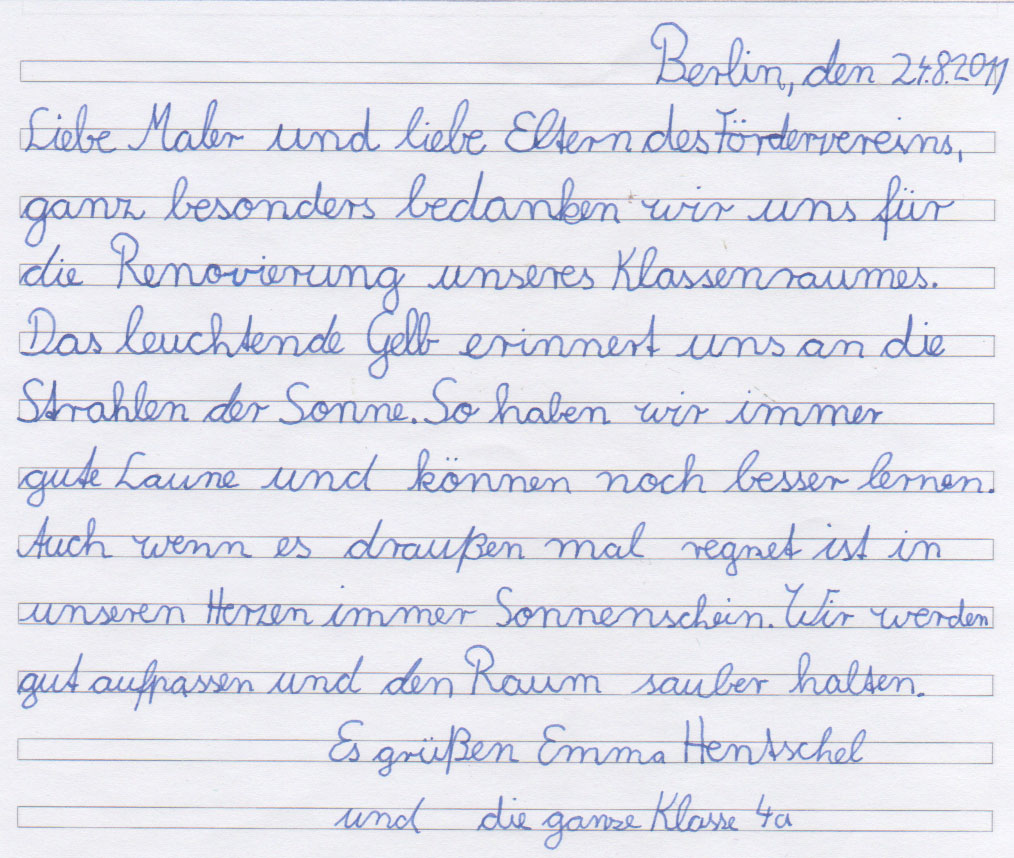 Berlin, den 24.8.2011
Liebe Maler und liebe Eltern des Fördervereins,
ganz besonders bedanken wir uns für
die Renovierung unseres Klassenraumes.
Das leuchtende Gelb erinnert uns an die
Strahlen der Sonne. So haben wir immer
gute Laune und können noch besser lernen.
Auch wenn es draußen mal regnet ist in
unseren Herzen immer Sonnenschein. Wir werden
gut aufpassen und den Raum sauber halten.
Es grüßen Emma Hentschel
und die ganze Klasse 4a